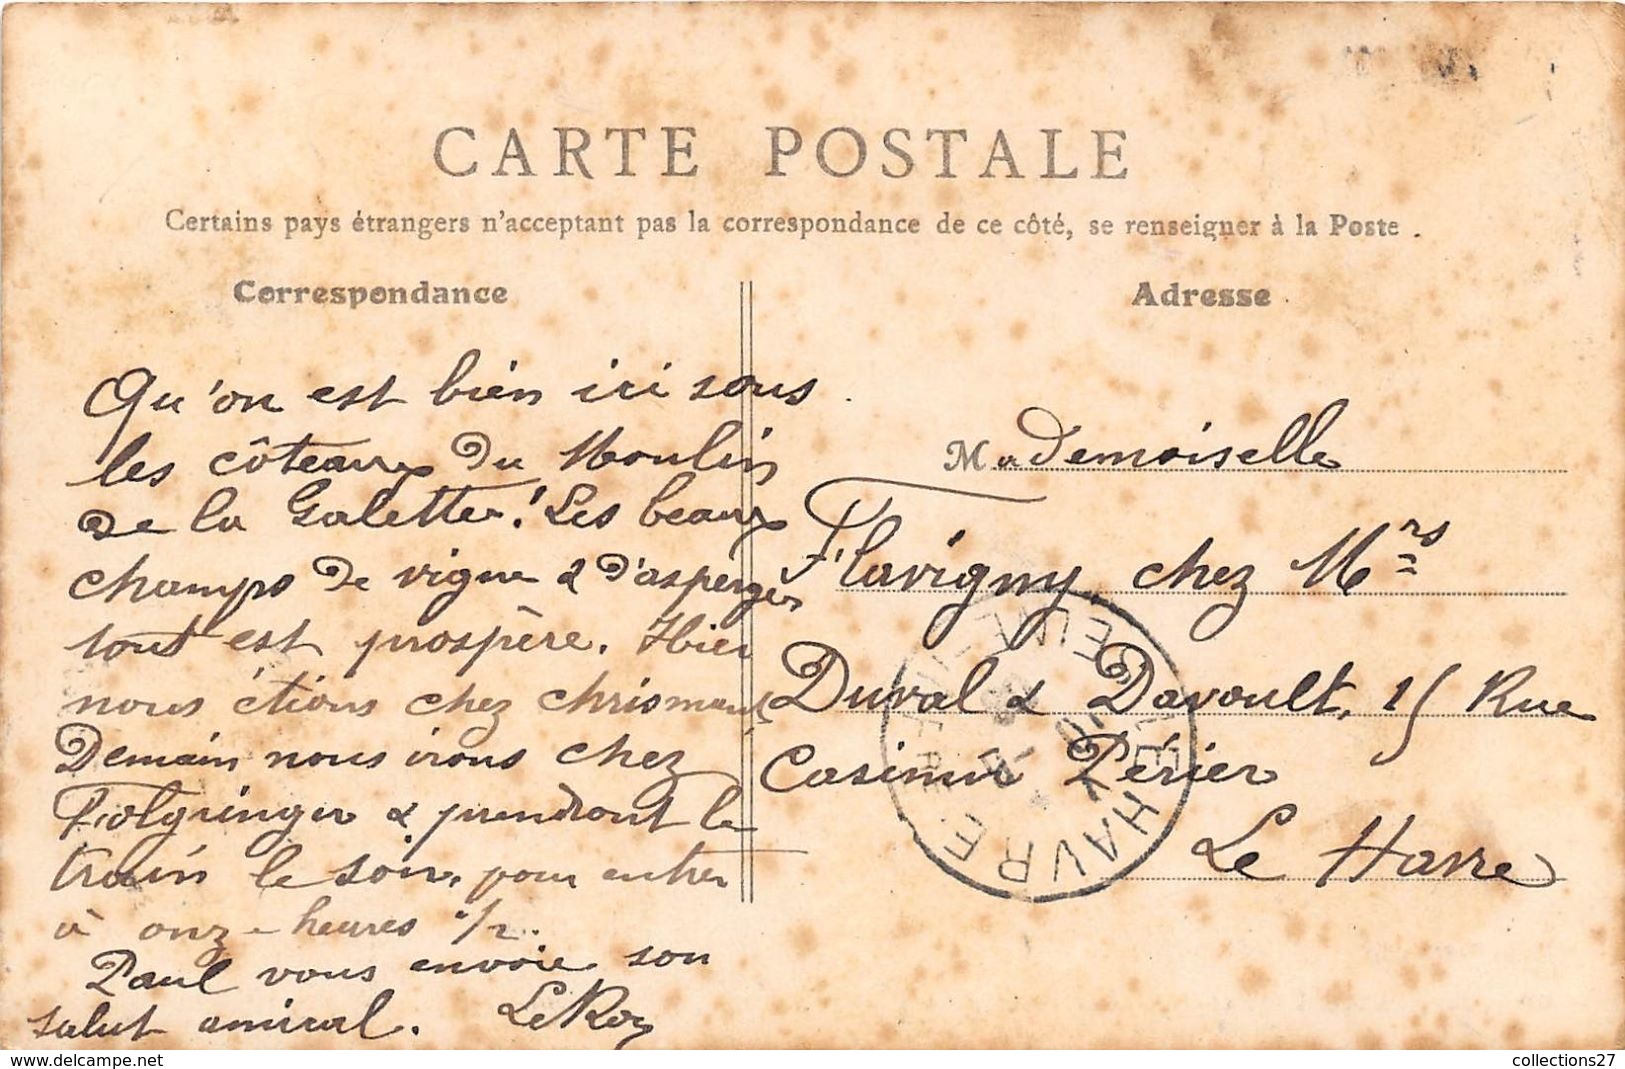 CARTE POSTALE
Certains pays étrangers n'acceptant pas la correspondance de ce côté, se renseigner à la Poste.
Correspondance
Qu'on est bien ici sous
les côteaux du Moulin
de la Galette! Les beaux
champs de vigne & d'asperges
tout est prospère. Hier
nous étions chez Chrisman
Demain nous irons chez
& prendront le
train le soir, pour entrer
à onze heures 1/2.
Paul vous envoie son
salut amical. LeRoy
Adresse
Mademoiselle
Flavigny, chez Mrs
Duval & Davoult, 15 Rue
Casimir Périer
Le Havre
LE HAVRE
www.delcampe.net
collections27